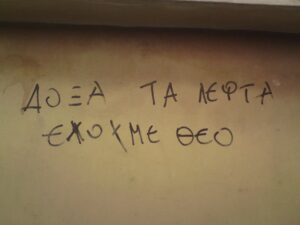 ΔΟΞΑ ΤΑ ΛΕΦΤΑ
ΕΧΟΥΜΕ ΘΕΟ